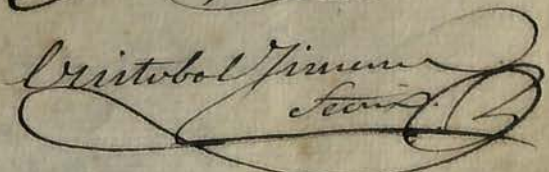 Cristobal Jimenez
Secrio.